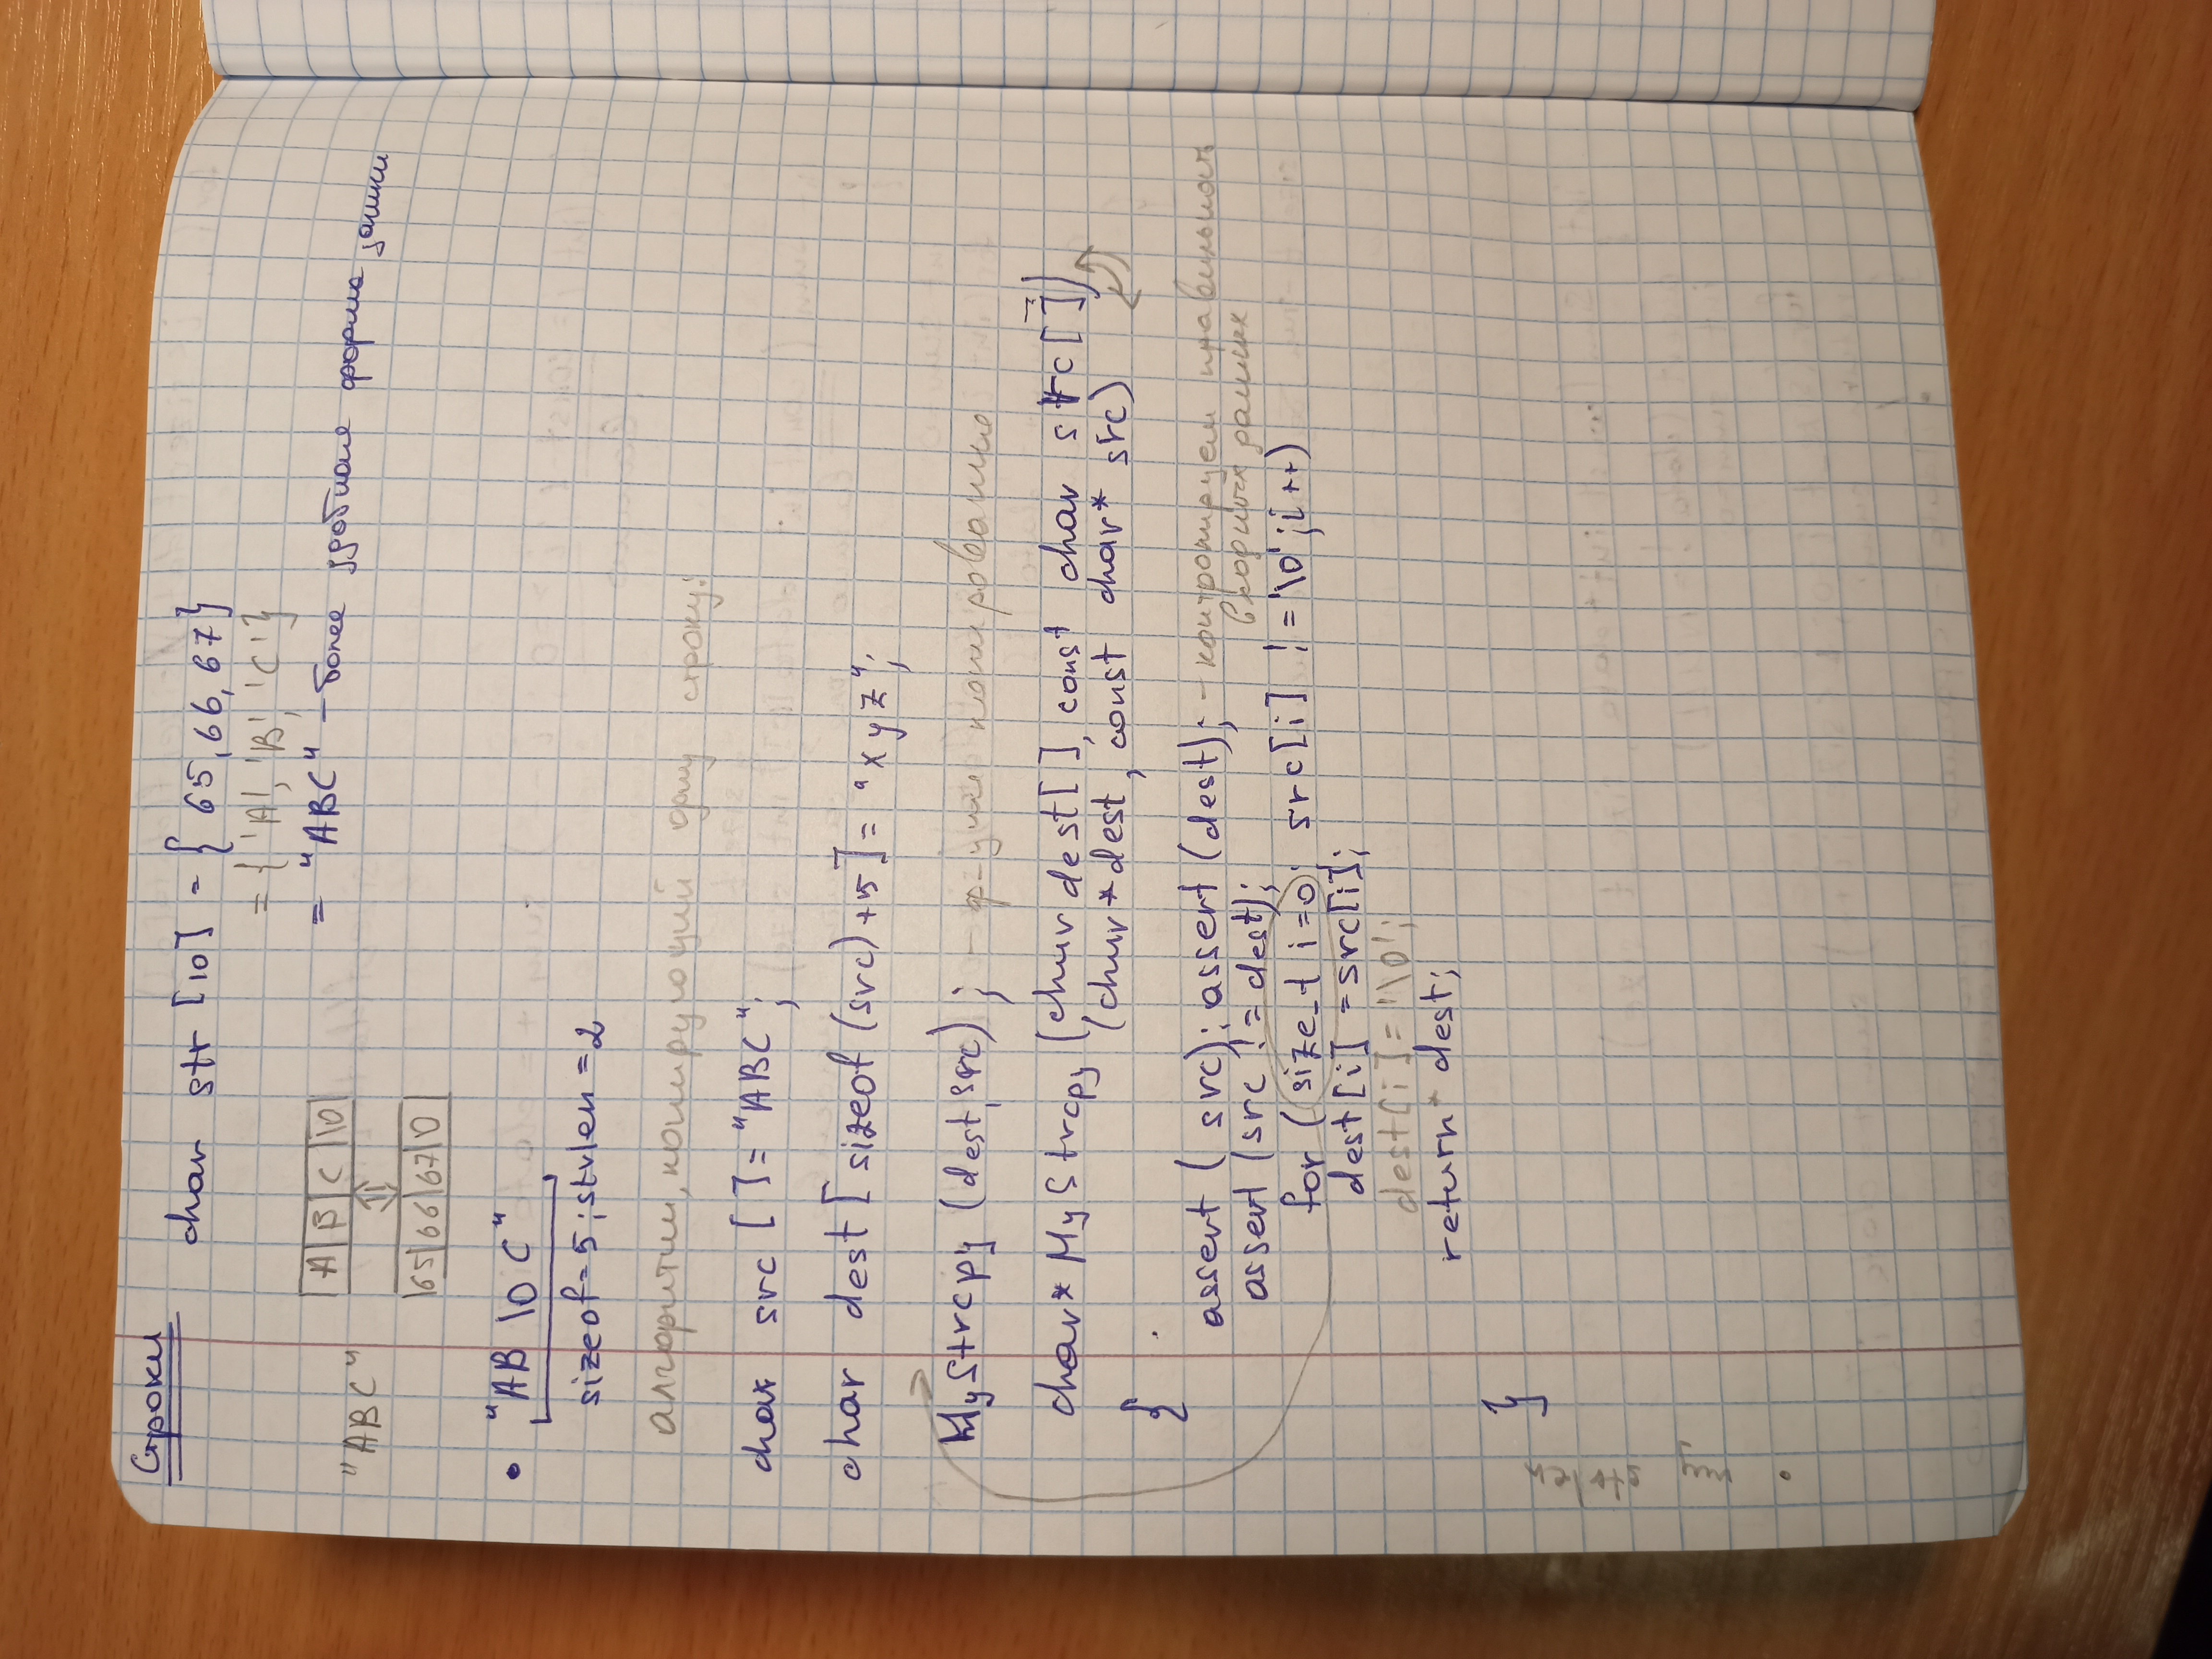 Строки
char str [10] = { 65, 66, 67}
= { 'A', 'B', 'C' }
= "ABC" – более удобная форма записи
"ABC"
A B C \0
65 66 67 0
• "AB \0 C"
sizeof = 5; strlen = 2
алгоритм, копирующий одну строку:
char src [ ] = "ABC";
char dest [sizeof (src) + 5] = "xyz";
MyStrcpy (dest, src); – ф-ция копирования
char* MyStrcpy (char dest[ ], const char src[ ])
(char* dest, const char* src)
{
assert ( src); assert (dest); – контролируем правильность
входных данных
assert (src != dest);
for (size_t i=0; src[i] != '\0'; i++)
dest[i] = src[i];
dest[i] = '\0';
return dest;
}
• my strlen